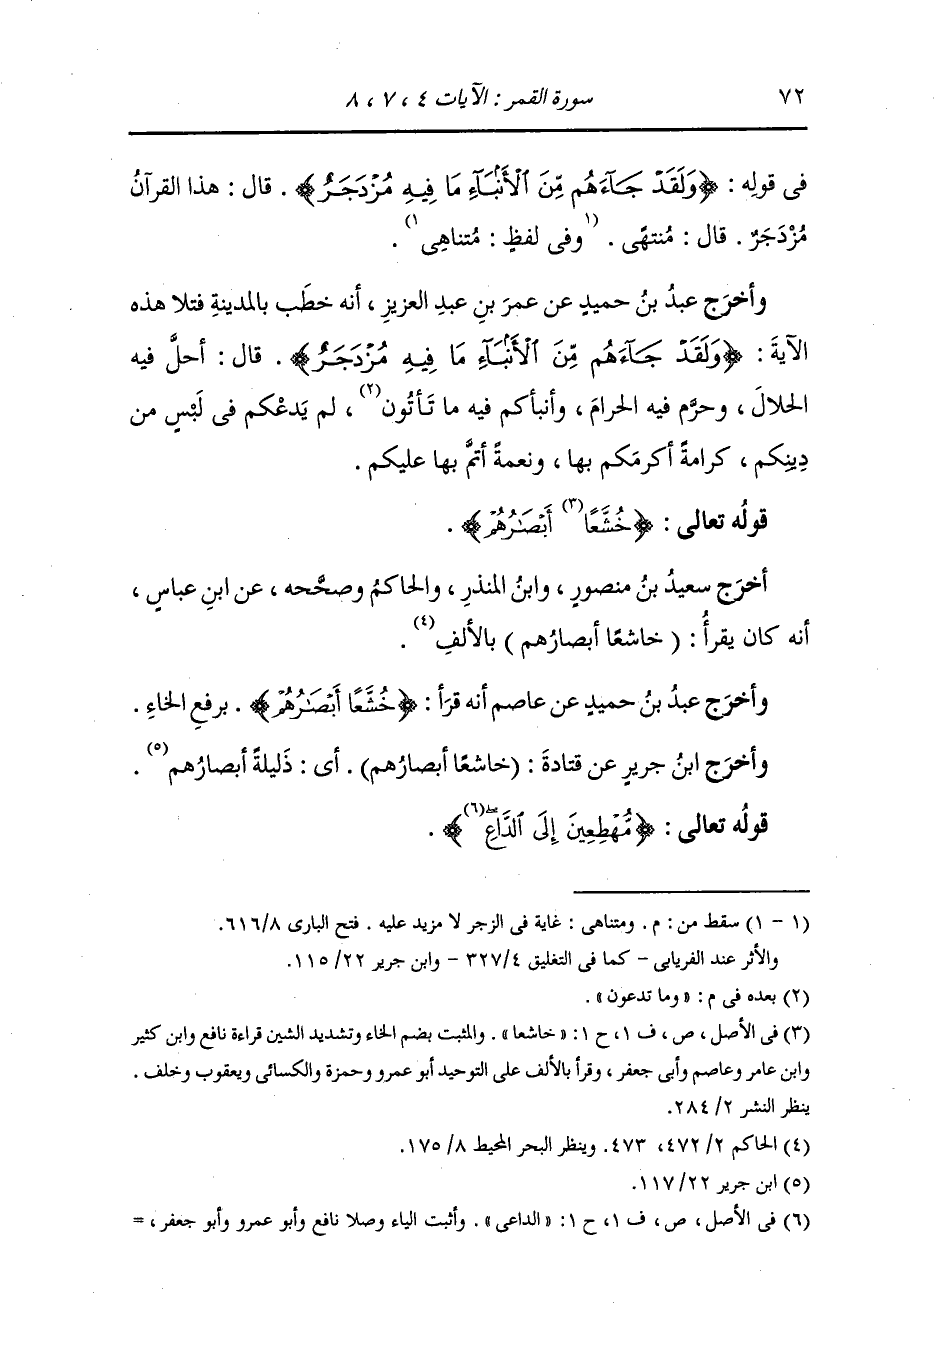 ٧٢ سورة القمر : الآيات ٤ ، ٧ ، ٨
فى قولِه : ﴿وَلَقَدْ جَآءَهُم مِّنَ ٱلْأَنۢبَآءِ مَا فِيهِ مُزْدَجَرٌ﴾ . قال : هذا القرآنُ
مُزْدَجَرٌ . قال : مُنتهًى . (١وفى لفظٍ : مُتناهِى١) .
وأخرَج عبدُ بنُ حميدٍ عن عمرَ بنِ عبدِ العزيزِ ، أنه خطَب بالمدينةِ فتلا هذه
الآيةَ : ﴿وَلَقَدْ جَآءَهُم مِّنَ ٱلْأَنۢبَآءِ مَا فِيهِ مُزْدَجَرٌ﴾ . قال : أحلَّ فيه
الحلالَ ، وحرَّم فيه الحرامَ ، وأنبأكم فيه ما تَأتُون(٢) ، لم يَدعْكم فى لَبْسٍ من
دِينِكم ، كرامةً أكرمَكم بها ، ونعمةً أتمَّ بها عليكم .
قولُه تعالى : ﴿خُشَّعًا(٣) أَبْصَٰرُهُمْ﴾ .
أخرَج سعيدُ بنُ منصورٍ ، وابنُ المنذرِ ، والحاكمُ وصحَّحه ، عن ابنِ عباسٍ ،
أنه كان يقرأُ : ( خاشعًا أبصارُهم ) بالألفِ(٤) .
وأخرَج عبدُ بنُ حميدٍ عن عاصم أنه قرَأ : ﴿خُشَّعًا أَبْصَٰرُهُمْ﴾ . برفعِ الخاءِ .
وأخرَج ابنُ جريرٍ عن قتادةَ : (خاشعًا أبصارُهم) . أى : ذَليلةً أبصارُهم(٥) .
قولُه تعالى : ﴿مُّهْطِعِينَ إِلَى ٱلدَّاعِ(٦)﴾ .
(١ - ١) سقط من : م . ومتناهى : غاية فى الزجر لا مزيد عليه . فتح البارى ٦١٦/٨.
والأثر عند الفريابى - كما فى التغليق ٣٢٧/٤ - وابن جرير ١١٥/٢٢.
(٢) بعده فى م : « وما تدعون » .
(٣) فى الأصل ، ص ، ف ١، ح ١: « خاشعا » . والمثبت بضم الخاء وتشديد الشين قراءة نافع وابن كثير
وابن عامر وعاصم وأبى جعفر ، وقرأ بالألف على التوحيد أبو عمرو وحمزة والكسائى ويعقوب وخلف .
ينظر النشر ٢٨٤/٢.
(٤) الحاكم ٤٧٢/٢، ٤٧٣. وينظر البحر المحيط ١٧٥/٨.
(٥) ابن جرير ١١٧/٢٢.
(٦) فى الأصل ، ص ، ف ١، ح ١: « الداعى » . وأثبت الياء وصلا نافع وأبو عمرو وأبو جعفر ، =